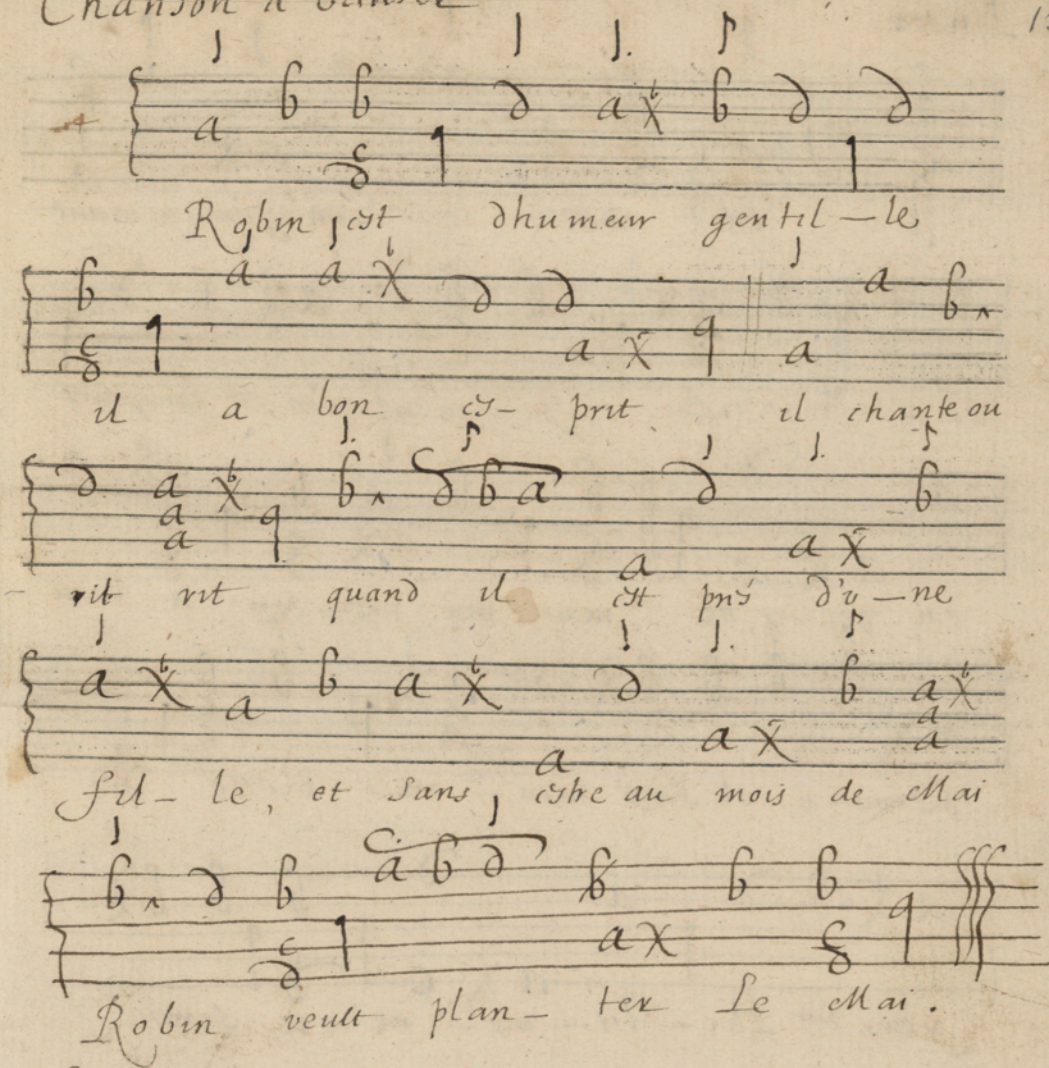 Chanson à danser
Robin est dhumeur gentil-le
il a bon es-prit il chante ou
rit rit quand il est pres d'v-ne
fil-le, et sans estre au mois de Mai
Robin veult plan-ter Le Mai.